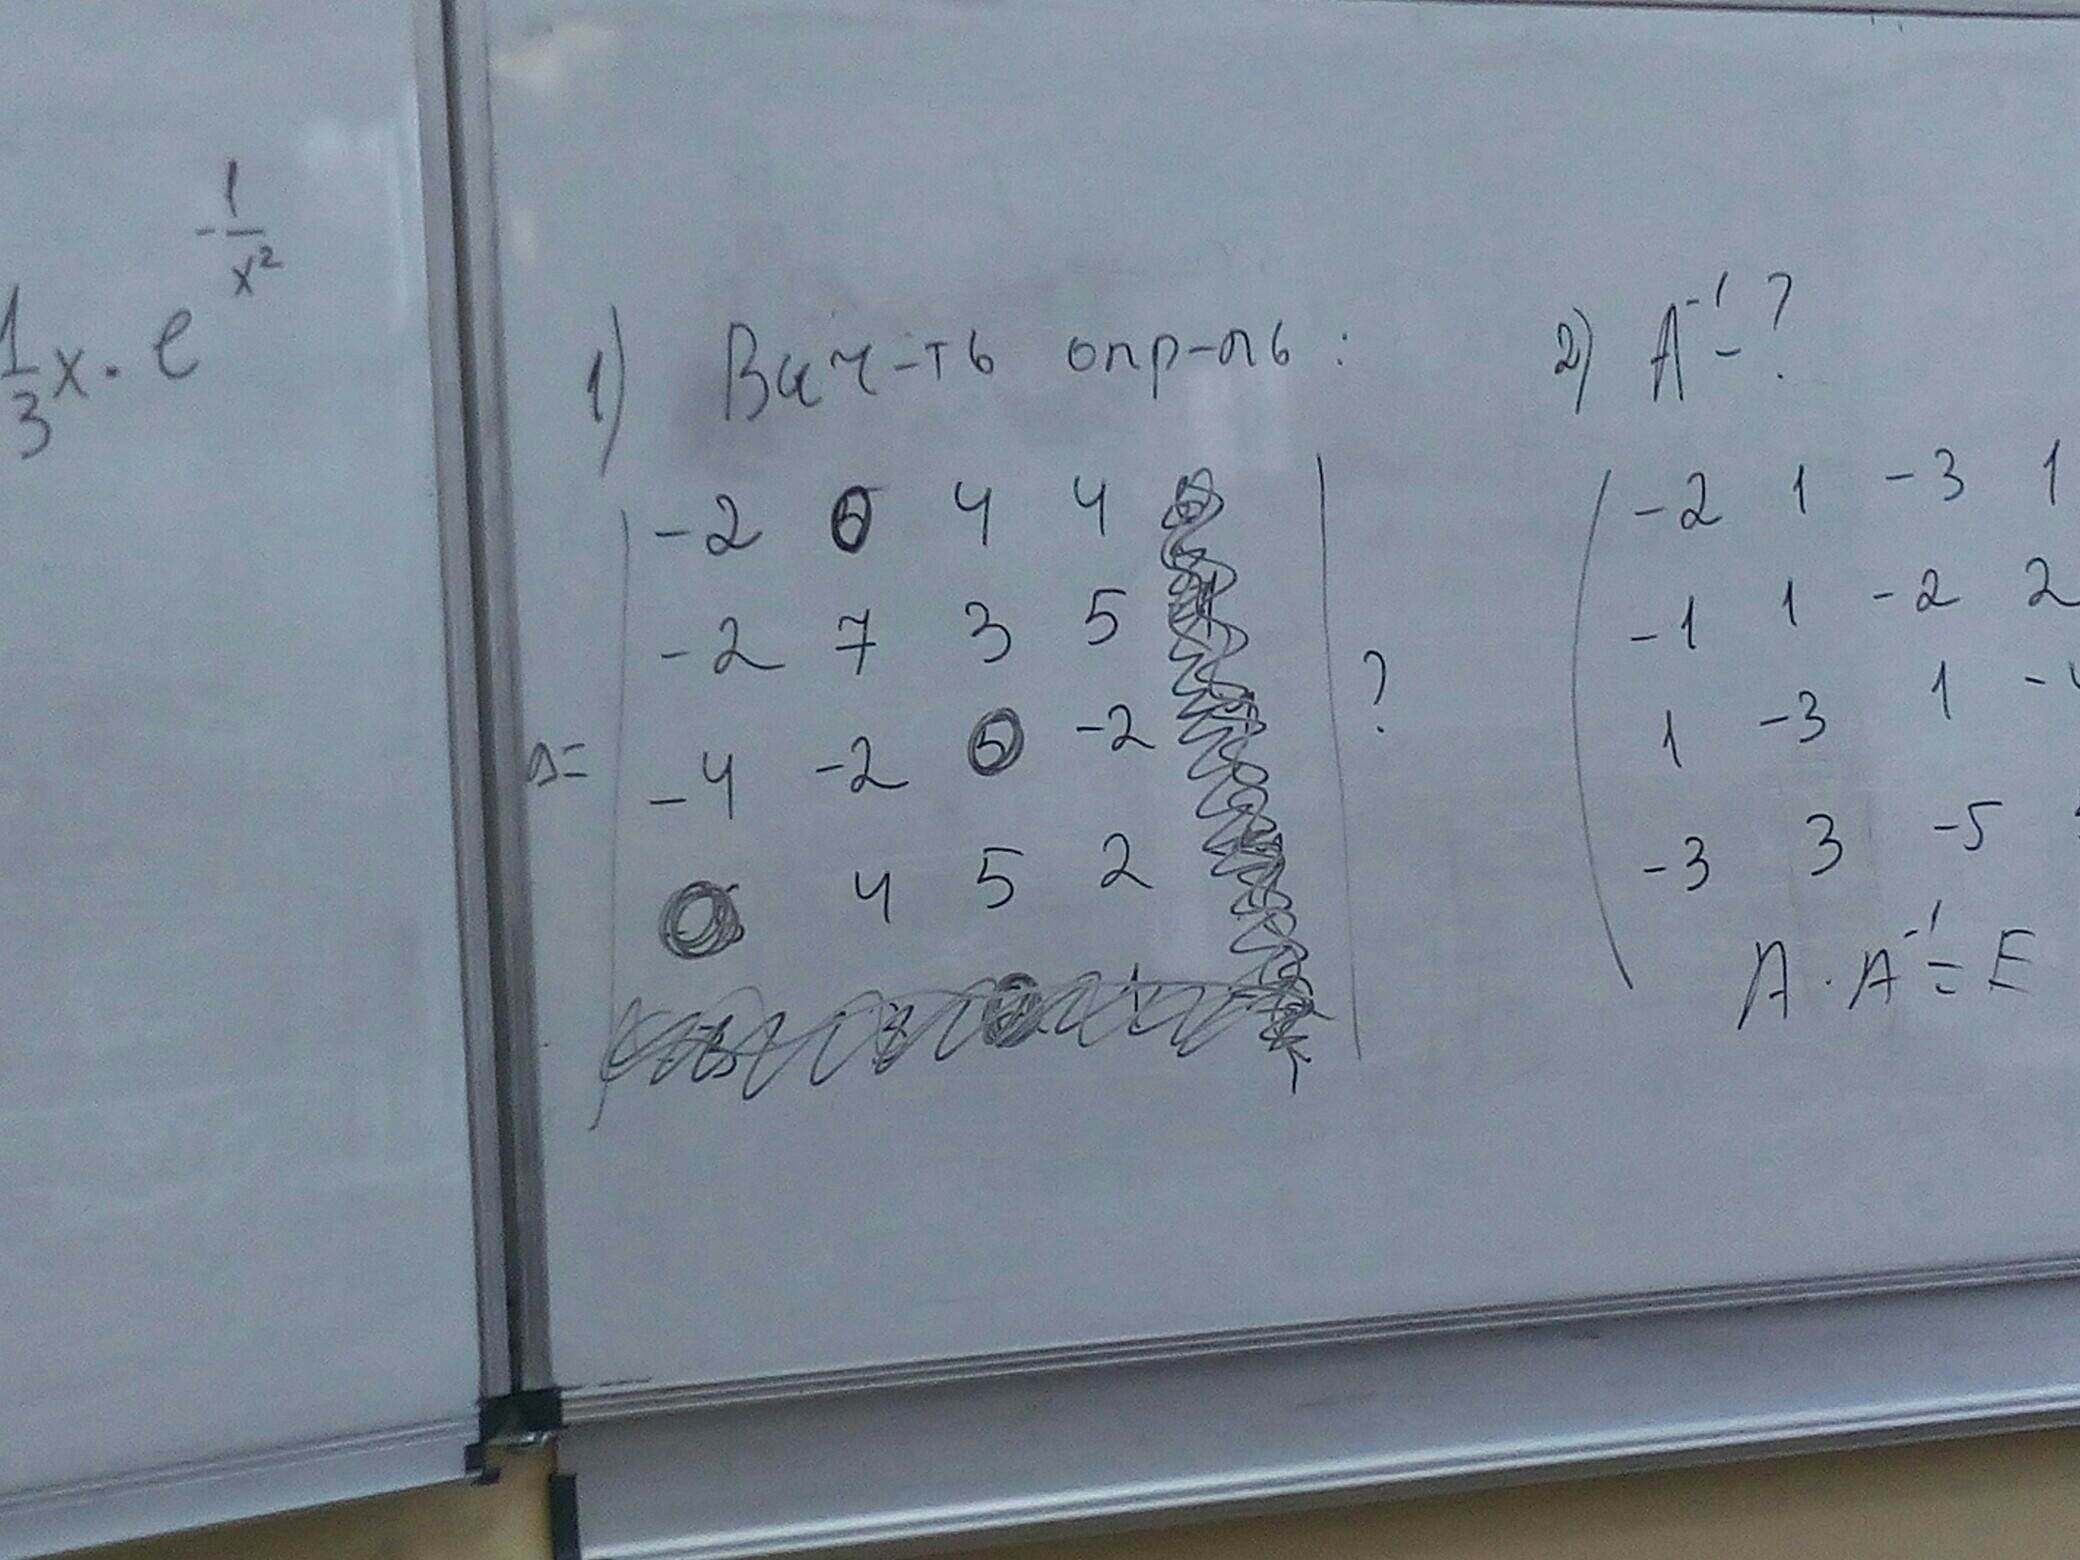 1/3 x · e^(-1/x²)
1) Выч-ть опр-ль:
-2 0 4 4
-2 7 3 5
Δ= -4 -2 0 -2 ?
0 4 5 2
2) A⁻¹ - ?
-2 1 -3 1
-1 1 -2 2
1 -3 1
-3 3 -5
A · A⁻¹ = E